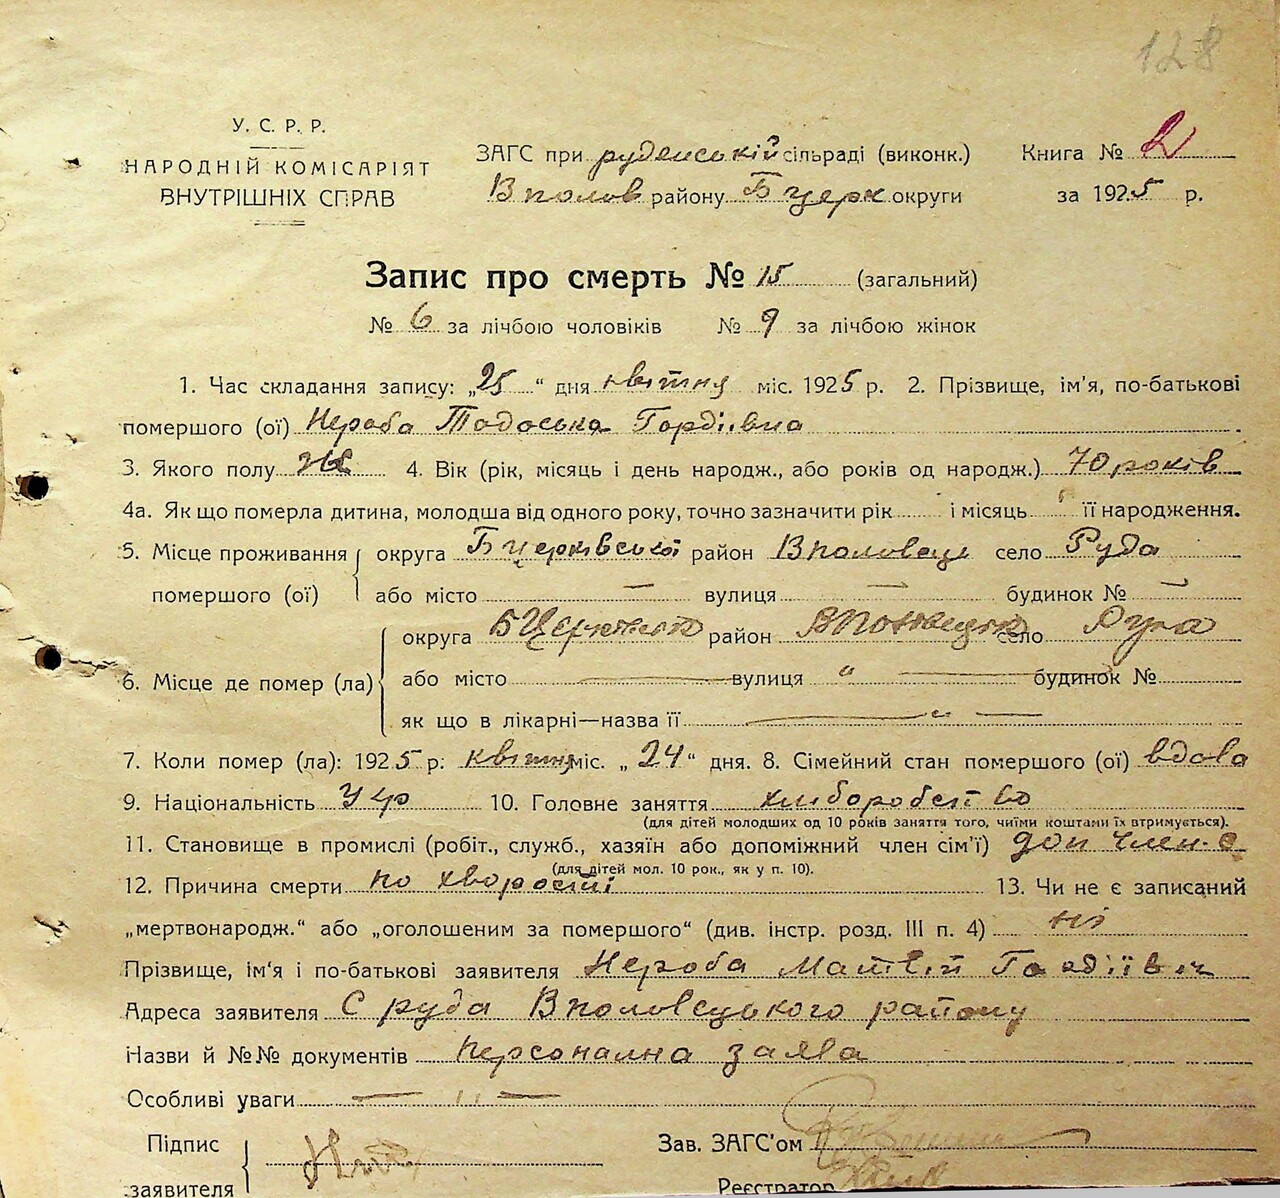 128
У. С. Р. Р.
НАРОДНІЙ КОМІСАРІЯТ
ВНУТРІШНІХ СПРАВ
ЗАГС при руденській сільраді (виконк.)
В полов району Б церк округи
Книга № 2
за 1925 р.
Запис про смерть № 15 (загальний)
№ 6 за лічбою чоловіків № 9 за лічбою жінок
1. Час складання запису: „25“ дня квітня міс. 1925 р. 2. Прізвище, ім'я, по-батькові
помершого (ої) Нероба Тодоська Гордіівна
3. Якого полу Же 4. Вік (рік, місяць і день народж., або років од народж.) 70 років
4а. Як що померла дитина, молодша від одного року, точно зазначити рік і місяць її народження.
5. Місце проживання округа Б церківської район В половецьк село Руда
помершого (ої) або місто — вулиця — будинок № —
округа БЦерківської район ВПоловецьк село Руда
6. Місце де помер (ла) або місто вулиця " будинок №
як що в лікарні—назва її "
7. Коли помер (ла): 1925 р. квітня міс. „24“ дня. 8. Сімейний стан помершого (ої) вдова
9. Національність Укр 10. Головне заняття хлиборобство
(для дітей молодших од 10 років заняття того, чиїми коштами їх втримується).
11. Становище в промислі (робіт., служб., хазяїн або допоміжний член сім'ї) доп член. с
(для дітей мол. 10 рок., як у п. 10).
12. Причина смерти по хворости 13. Чи не є записаний
„мертвонародж.“ або „оголошеним за помершого“ (див. інстр. розд. III п. 4) ні
Прізвище, ім'я і по-батькові заявителя Нероба Матвій Гордіївич
Адреса заявителя С руда В половецького району
Назви й №№ документів персонална заява
Особливі уваги — " —
Підпис
заявителя
Зав. ЗАГС'ом
Реєстратор